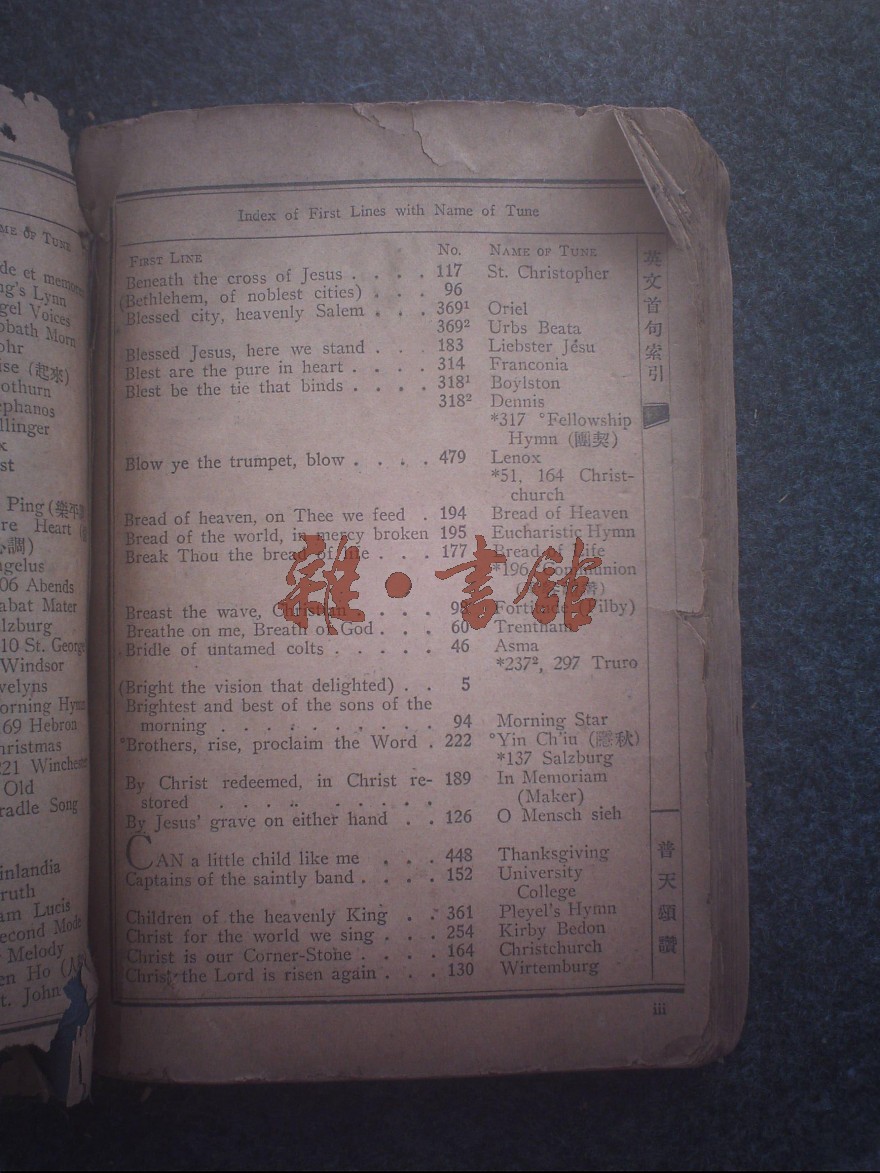 ME OF TUNE
de et memor
ng's Lynn
gel Voices
bbath Morn
ohr
use (起來)
othurn
ephanos
llinger
x
st
Ping (樂平
re Heart
調)
ngelus
06 Abends
abat Mater
alzburg
10 St. George
Windsor
velyns
orning Hym
69 Hebron
hristmas
21 Winchester
Old
radle Song
inlandia
ruth
am Lucis
econd Mode
Melody
en Ho
t. John
Index of First Lines with Name of Tune
FIRST LINE No. NAME OF TUNE
Beneath the cross of Jesus . . . . 117 St. Christopher
(Bethlehem, of noblest cities) . . . 96
Blessed city, heavenly Salem . . . 369¹ Oriel
369² Urbs Beata
Blessed Jesus, here we stand . . 183 Liebster Jesu
Blest are the pure in heart . . . . 314 Franconia
Blest be the tie that binds . . . . 318¹ Boylston
318² Dennis
*317 °Fellowship
Hymn (團契)
Blow ye the trumpet, blow . . . . 479 Lenox
*51, 164 Christ-
church
Bread of heaven, on Thee we feed . 194 Bread of Heaven
Bread of the world, in mercy broken 195 Eucharistic Hymn
Break Thou the bread of life . . . 177 Bread of Life
*196 Communion
Breast the wave, Christian . . . . . 98 Fortitude
Breathe on me, Breath of God . . . 60 Trentham
Bridle of untamed colts . . . . . 46 Asma
*237², 297 Truro
(Bright the vision that delighted) . . 5
Brightest and best of the sons of the
morning . . . . . . . . . 94 Morning Star
°Brothers, rise, proclaim the Word . 222 °Yin Ch'iu
*137 Salzburg
By Christ redeemed, in Christ re- 189 In Memoriam
stored . . . . . . . . . (Maker)
By Jesus' grave on either hand . . 126 O Mensch sieh
CAN a little child like me . . . 448 Thanksgiving
Captains of the saintly band . . . . 152 University
College
Children of the heavenly King . . 361 Pleyel's Hymn
Christ for the world we sing . . . 254 Kirby Bedon
Christ is our Corner-Stone . . . . 164 Christchurch
Christ the Lord is risen again . . . 130 Wirtemburg
英文首句索引
普天頌讚
iii
雜·書館